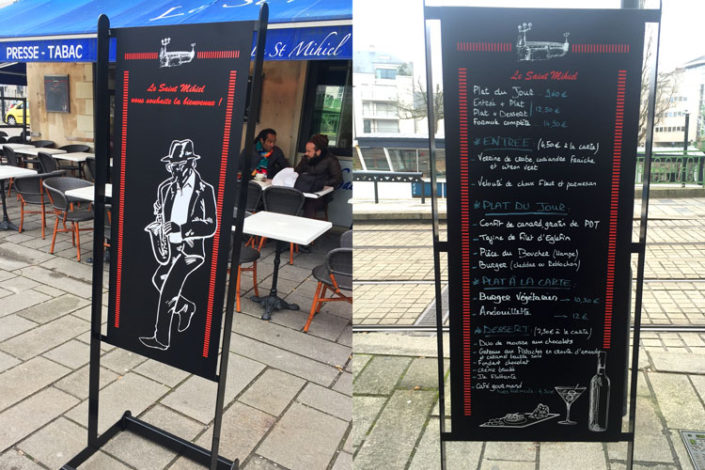 PRESSE - TABAC
St Mihiel
Le Saint Mihiel
vous souhaite la bienvenue !
Le Saint Mihiel
Plat du Jour
Entrée + Plat
Plat + Dessert 12,50
Formule complète 14,50
* ENTREE (4,50 € à la carte)
- Verrine de crabe, coriandre fraîche
et citron vert
- Velouté de choux fleur et parmesan
* PLAT DU JOUR
- Confit de canard, gratin de PDT
- Tajine de filet d'Eglefin
- Pièce du Boucher (Hampe)
- Burger (cheddar ou Reblochon)
* PLAT À LA CARTE
- Burger Végétarien → 10,50 €
- Andouillette → 12 €
* DESSERT (4,50 € à la carte)
- Duo de mousse aux chocolats
- Gâteau aux Pistaches en croûte d'amande
et caramel beurre salé
- Fondant chocolat
- Crème brulée
- Ile flottante
- Café gourmand